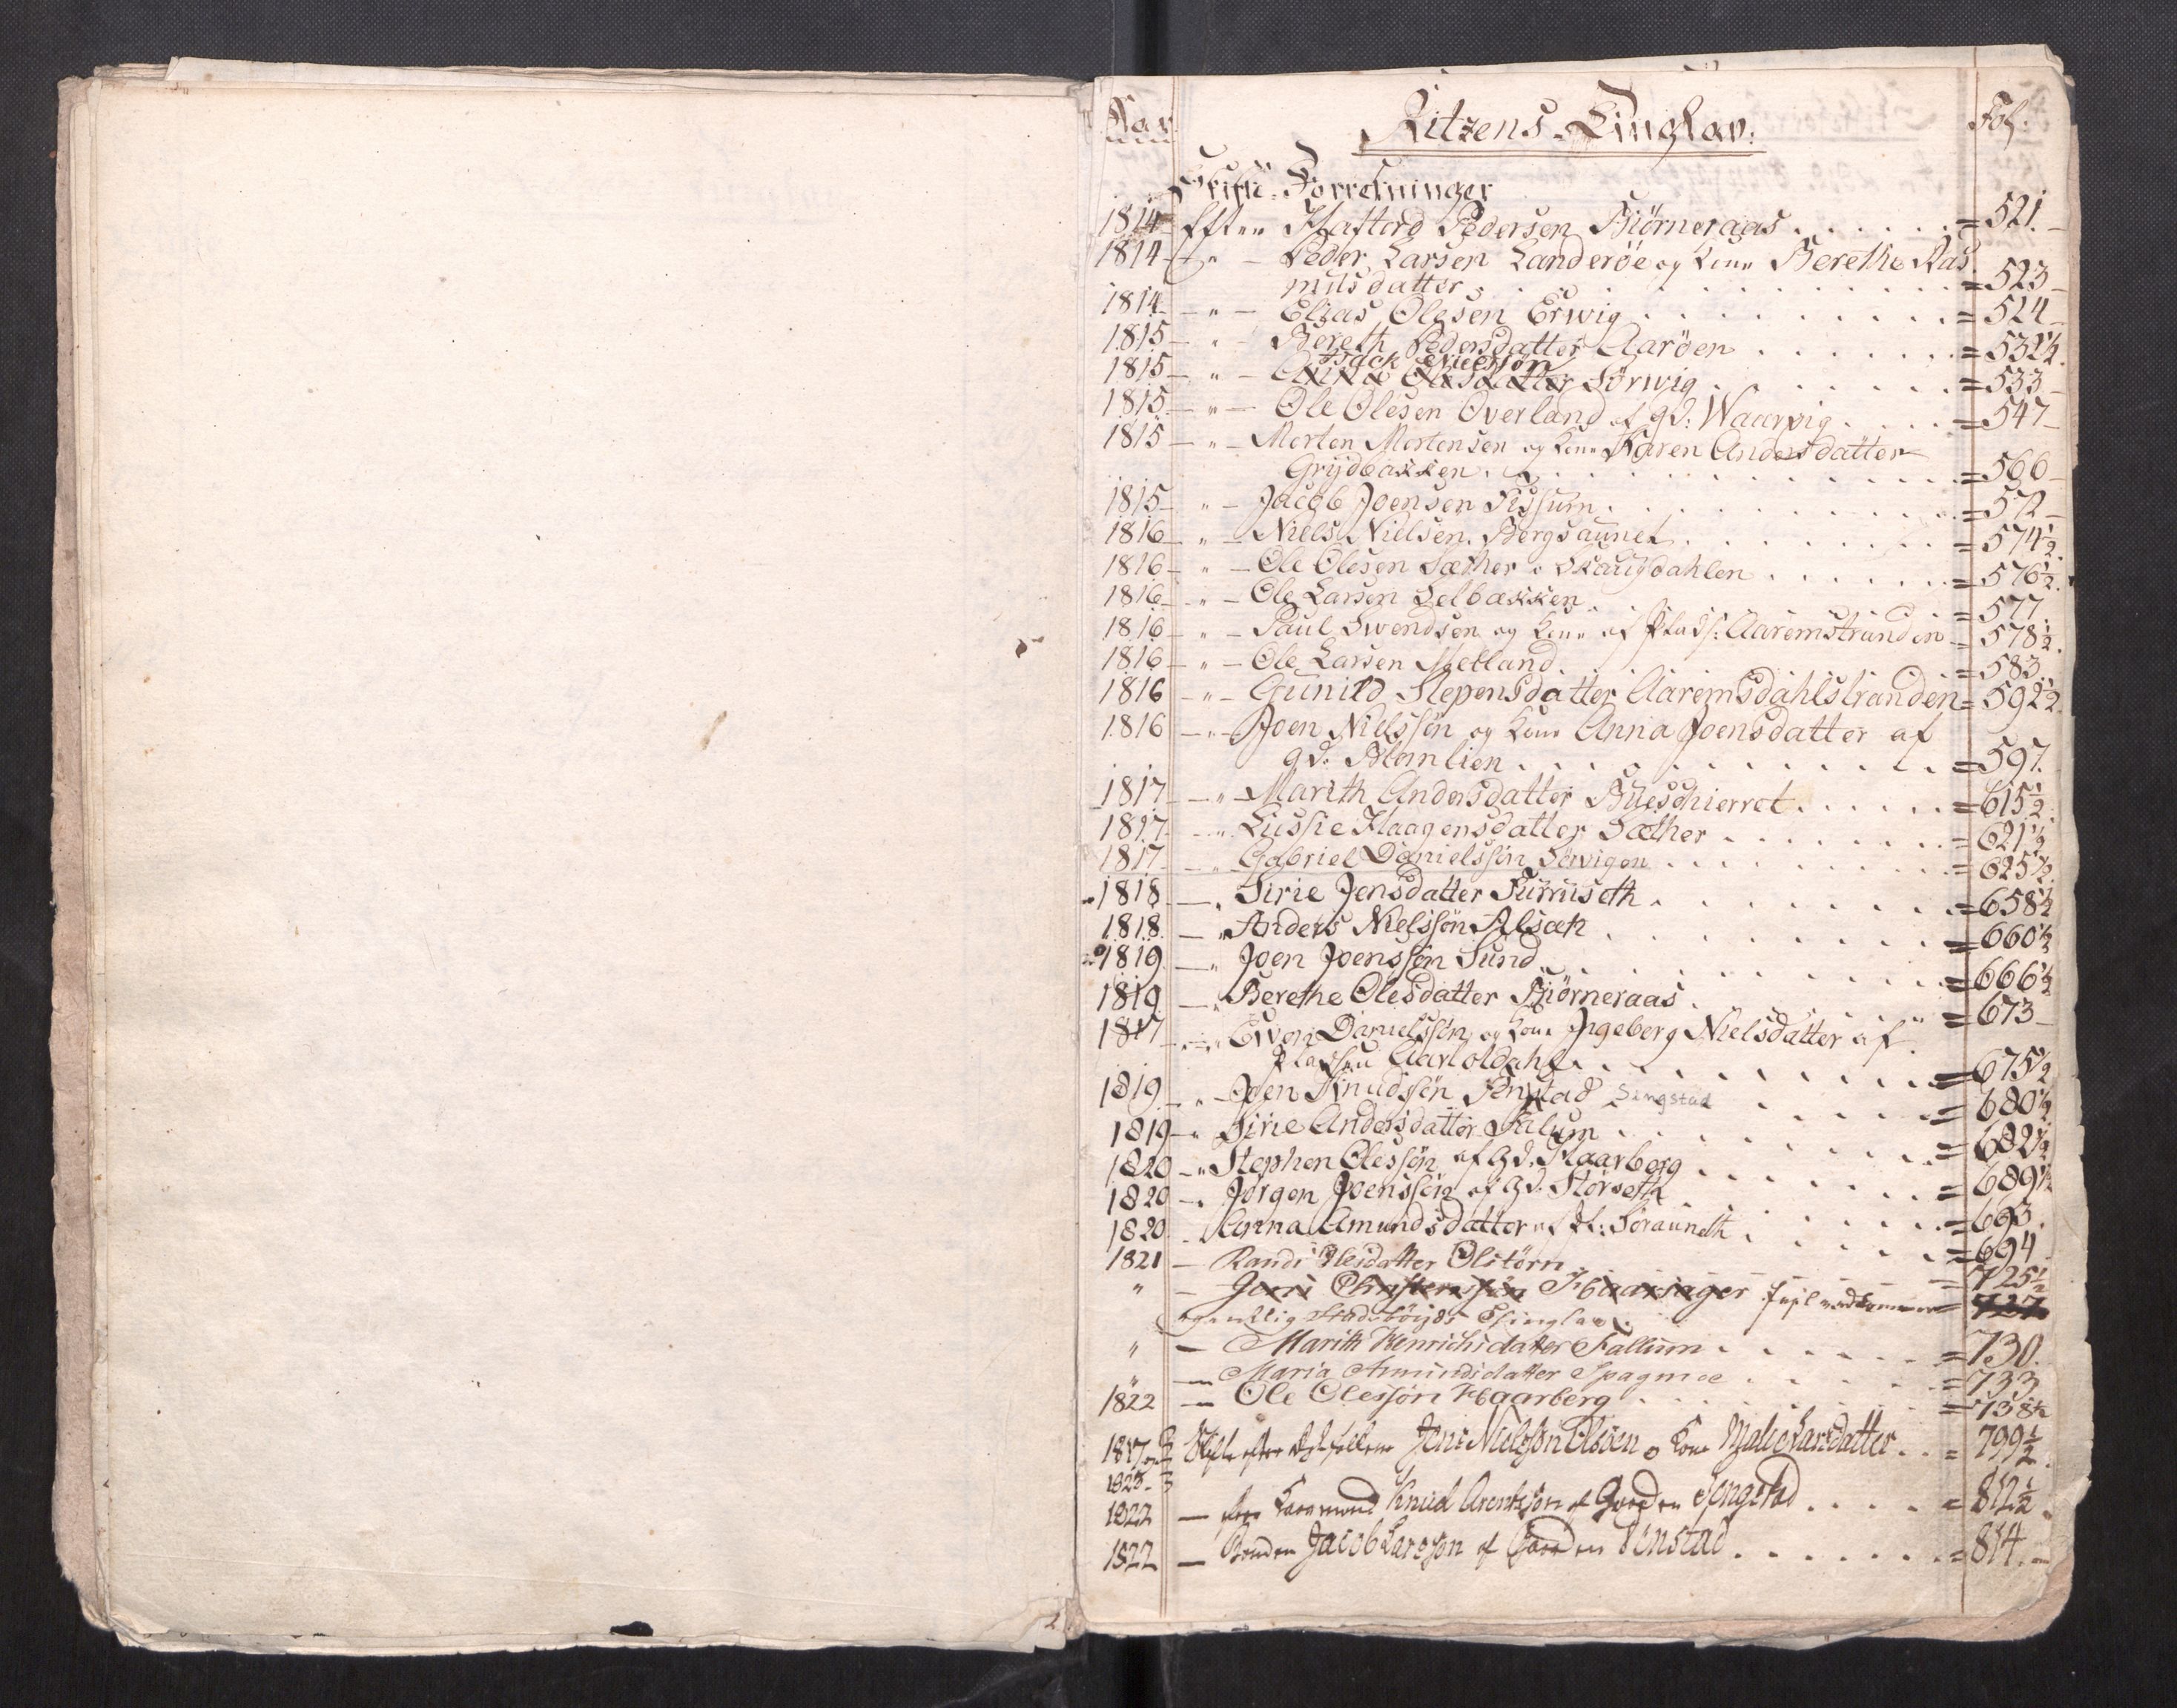 Aar. Ritzens Tinglav: Fol:
Skifte-Forretninger
1814 - Efter Haftord Pedersen Biörneraas . . . . . = 521.
1814 - " - Peder Larsen Landeröe og Kone Berethe Ras
musdatter . . . . . = 523
1814 - " - Elias Olesen Erwig . . . . . = 524
1815 - " - Bereth Pedersdatter Aaröen . . . . . = 532½
Isack Nielssøn
1815 - " - Olesdatter Sörwig . . . . . = 533
1815 - " - Ole Olesen Overland af gd: Waarvig . . . . = 547
1815 - " - Morten Mortensen og Kone Karen Andersdatter
Grydbakken . . . . . = 566
1815 - " - Jacob Joensen Fissum . . . . . = 572
1816 - " - Niels Nielsen Bergsaunet . . . . . = 574½
1816 - " - Ole Olesen Sæther i Skaugdahlen . . . . . = 576½
1816 - " - Ole Larsen Selbækken . . = 577.
1816 - " - Paul Swendsen og Kone af Plads: Aaremstranden = 578½
1816 - " - Ole Larsen Mæland . . . . = 583.
1816 - " - Gunild Stepensdatter Aaremsdahlstranden = 592½
1816 - " - Joen Nielssøn og Kone Anna Joensdatter af
gd: Blomlien . . . . . = 597.
1817 - " - Marith Andersdatter Bueschierret . . . . . = 615½
1817 - " - Lussie Haagensdatter Sæther . . . . . = 621½
1817 - " - Gabriel Danielssøn Söwigen . . . . . = 625½
1818 - " Sirie Jensdatter Furruseth . . . . . = 658½
1818 - " Anders Nielssøn Alsæth . . . . . = 660½
1819 - " Joen Joenssøn Sund . . . . . = 666½
1819 - " Berethe Olesdatter Biörneraas . . . . . = 673
1817 - " Even Danielssøn og Kone Ingeberg Nielsdatter af
Pladsen Aarloldahl . . . . . = 675½
1819 - " - Joen Knudssøn Fenstad Singstad . . . . . = 680½
1819 - " Sirie Andersdatter Falum . . . . . = 682½
1820 - " Stephen Olessøn af Gd. Haarberg . . . . . = 689½
1820 - " Jørgen Joenssøn af Gd. Störseth . . . . . = 693.
1820 - Anna Amundsdatter af Pl: Sörauneth . . . . . = 694
1821 - Randi Olesdatter Olstörn = 725½
" - Jens Christenssøn Haarsager = 727
egentlig Stadsböyds Thinglav.
" - Marith Henrichsdatter Fallum . . . . . = 730.
" - Maria Amundsdatter Spagmoe . . . . . = 733
1822 - Ole Olessøn Haarberg . . . . . = 738½
1817 og Skifte efter Jens Nielssøn Olsöen og Kone Malie Larsdatter . . = 799½
1823
1822 - efter Knud Arentssøn af Gaarden Singstad . . . . . = 812½
1822 - Bonden Jacob Larssøn af Gaarden Fenstad . . . . . = 814.
2